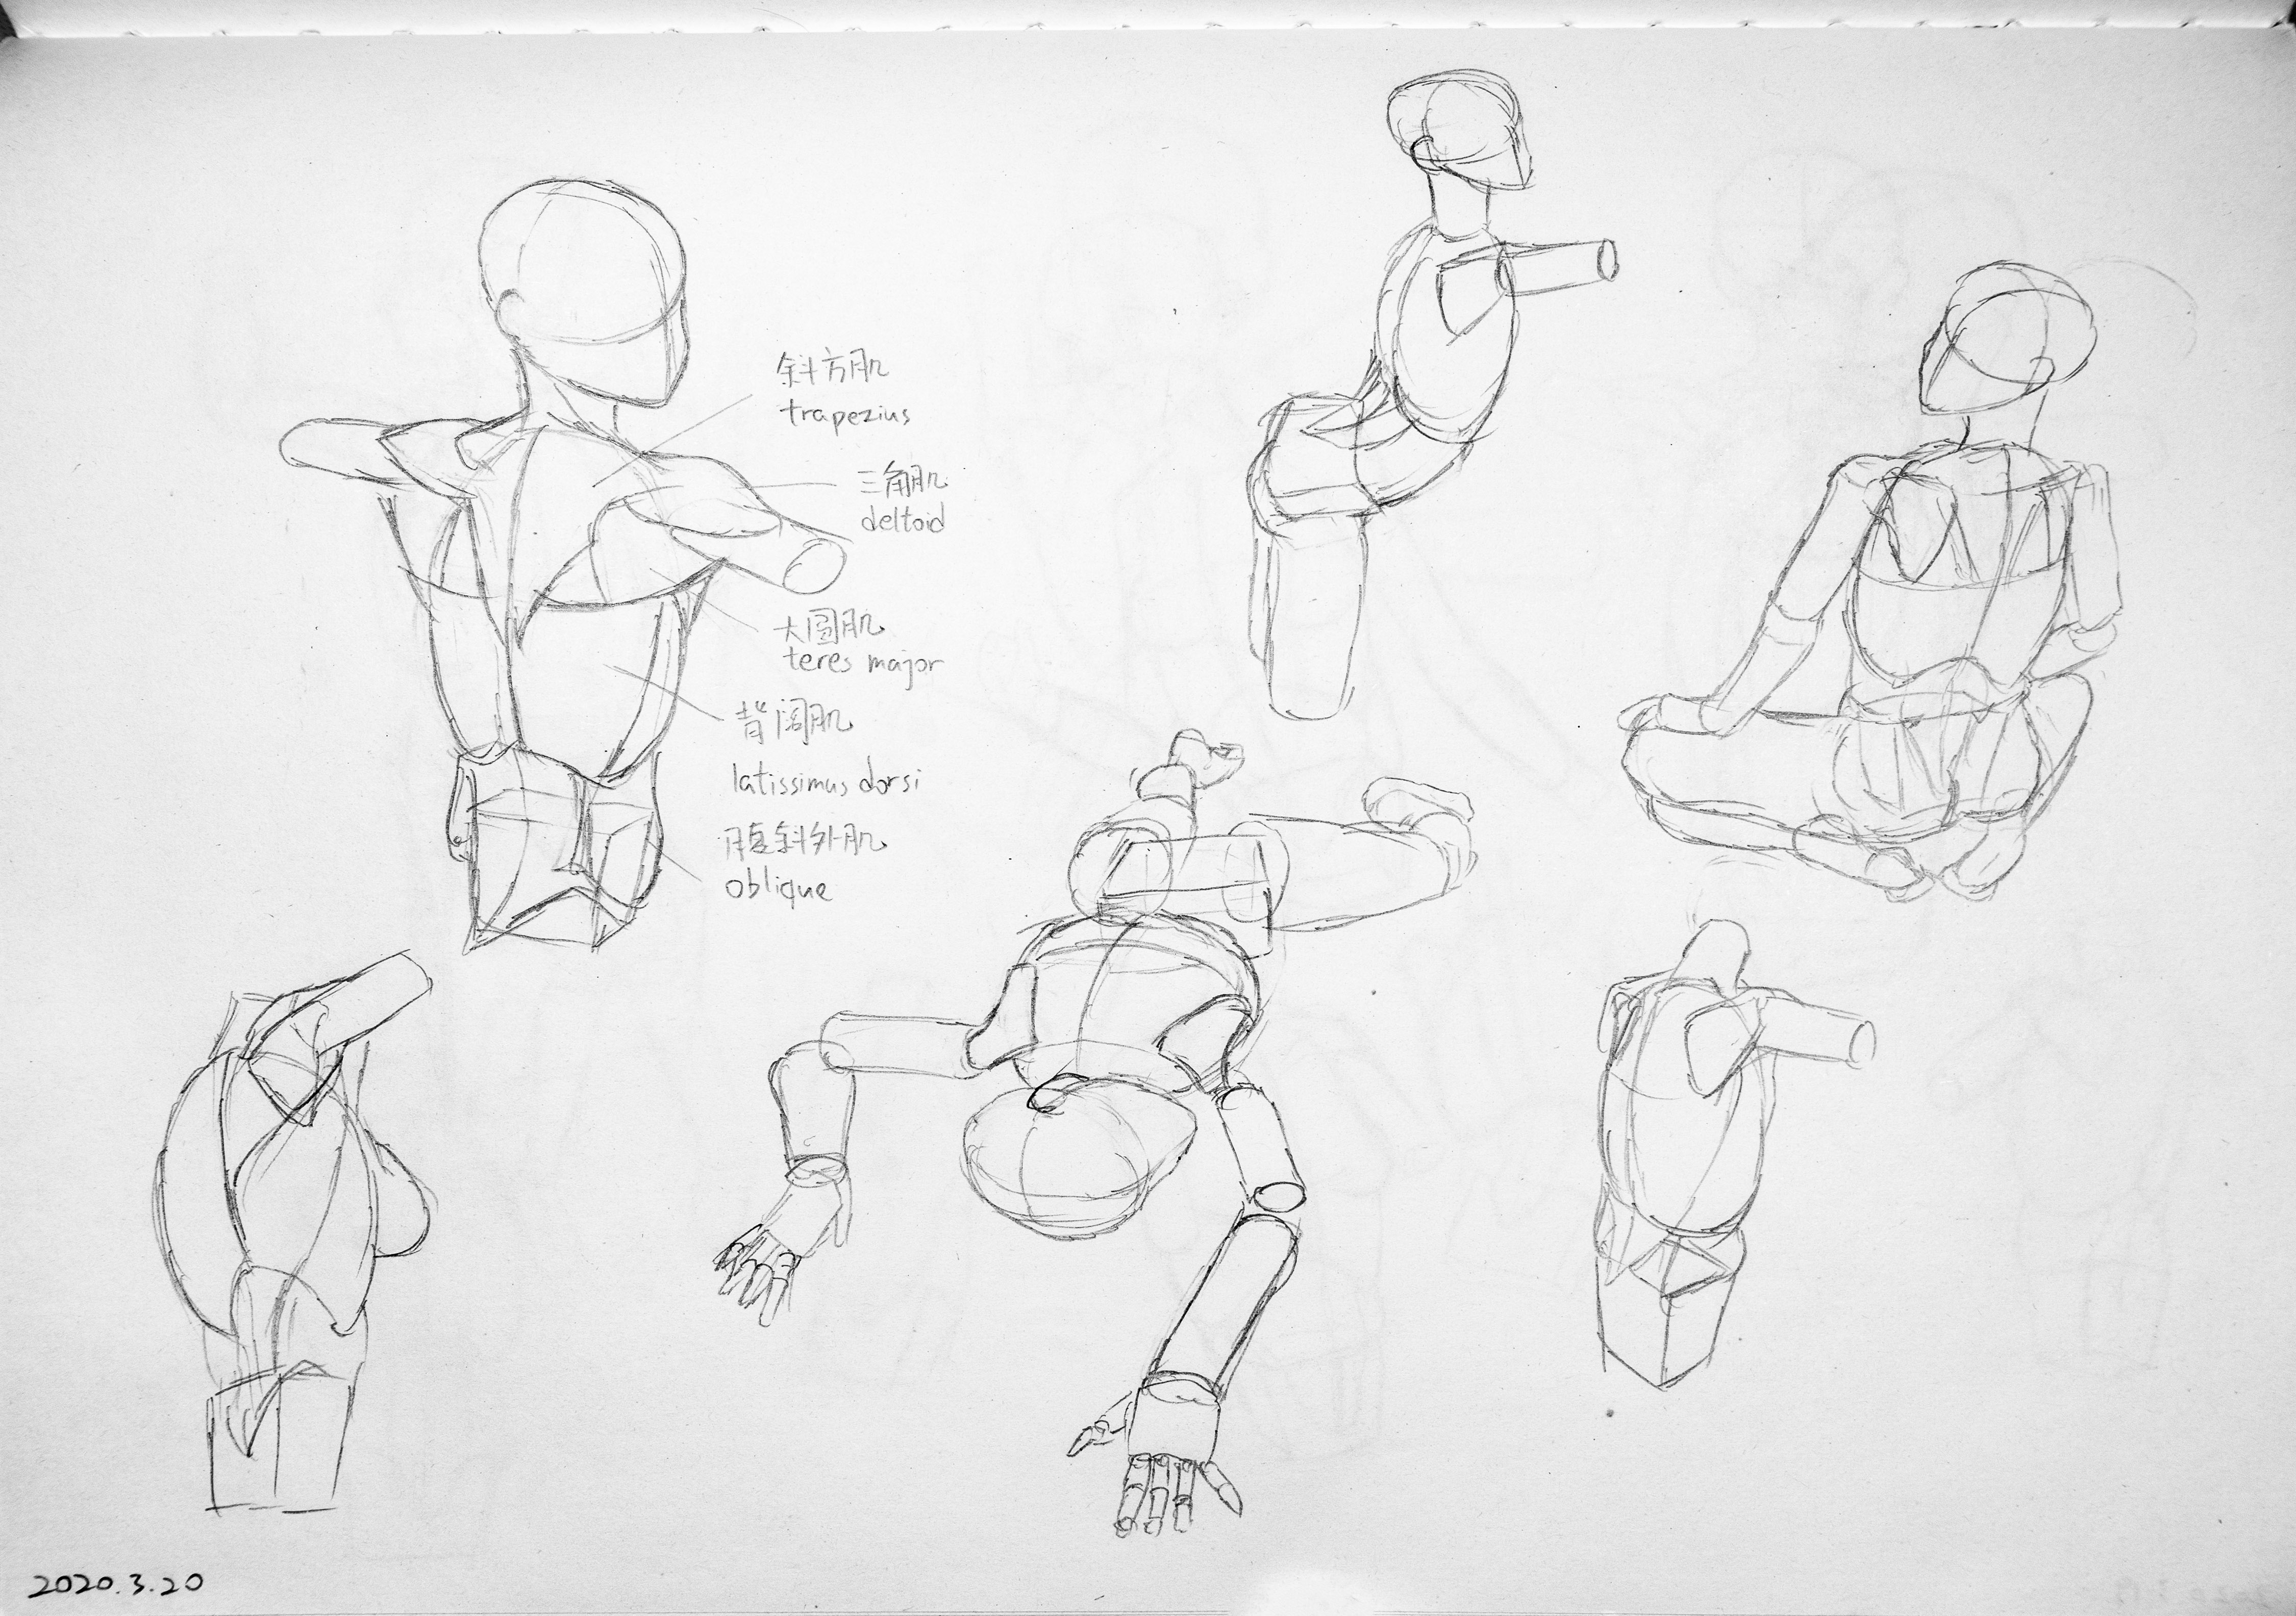 斜方肌
trapezius
三角肌
deltoid
大圆肌
teres major
背阔肌
latissimus dorsi
腹斜外肌
oblique
2020.3.20